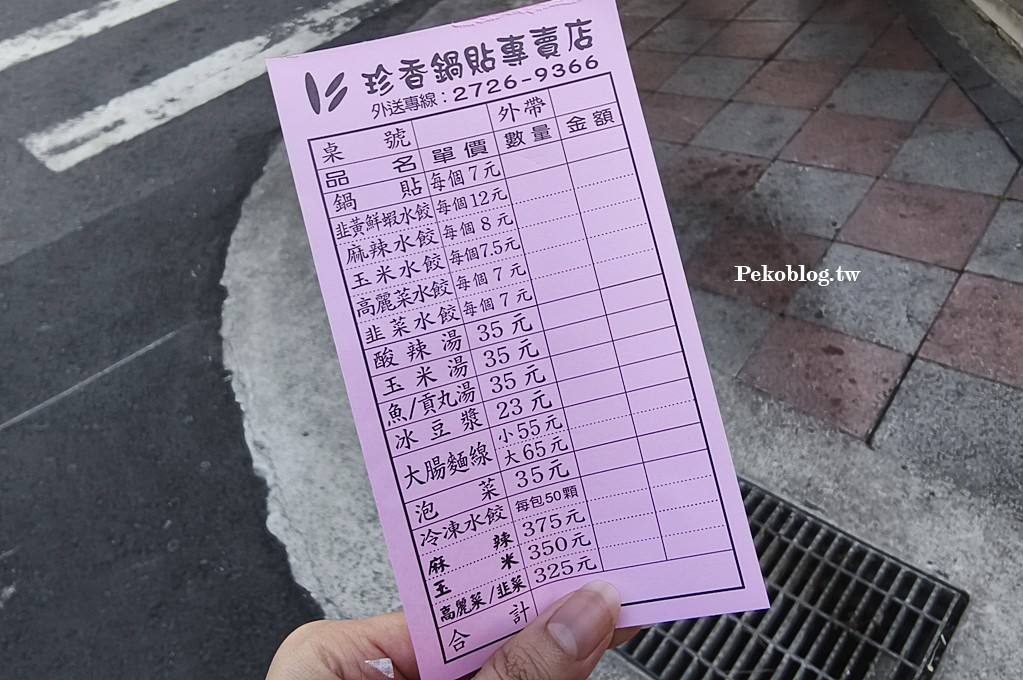 珍香鍋貼專賣店
外送專線：2726-9366
桌號 外帶
品名 單價 數量 金額
鍋貼 每個7元
韭黃鮮蝦水餃 每個12元
麻辣水餃 每個8元
玉米水餃 每個7.5元
高麗菜水餃 每個7元
韭菜水餃 每個7元
酸辣湯 35元
玉米湯 35元
魚/貢丸湯 35元
冰豆漿 23元
大腸麵線 小55元
大65元
泡菜 35元
冷凍水餃 每包50顆
麻辣 375元
玉米 350元
高麗菜/韭菜 325元
合計
Pekoblog.tw